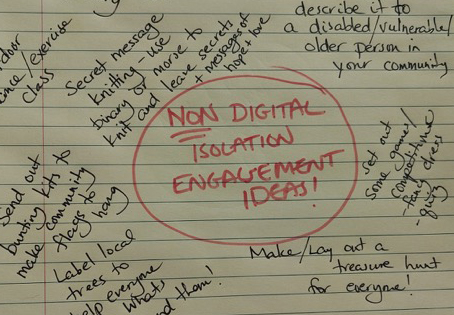 describe it to
a disabled/vulnerable/
older person in
your community
class
Secret message
knitting - use
binary or morse to
knit and leave secrets
+ messages of
hope + love
NON DIGITAL
ISOLATION
ENGAGEMENT
IDEAS!
set out
some games/
competitions
- fancy dress
- quiz
Send out
bunting kits to
make community
flags to
hang
Label local
trees to
help everyone
whats
them!
Make/Lay out a
treasure hunt
for everyone!